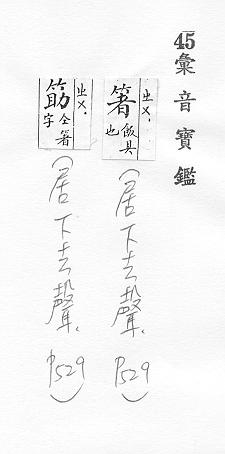 45彙音寶鑑
ㄓㄨˋ
箸 飯具也
(居下去聲、P529)
ㄓㄨˋ
筯 仝箸字
(居下去聲、P529)